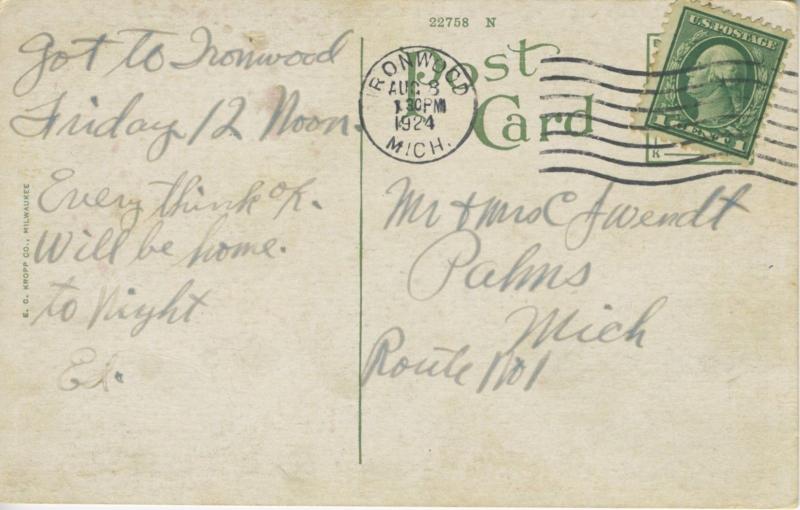 22758 N
Post
Card
IRONWOOD
AUG 8
1 30PM
1924
MICH.
U.S. POSTAGE
1 CENT 1
K
got to Ironwood
Friday 12 Noon.
Every think ok.
Will be home.
to Night
Ed.
E. C. KROPP CO., MILWAUKEE
Mr & Mrs C J Wendt
Palms
Mich
Route No 1